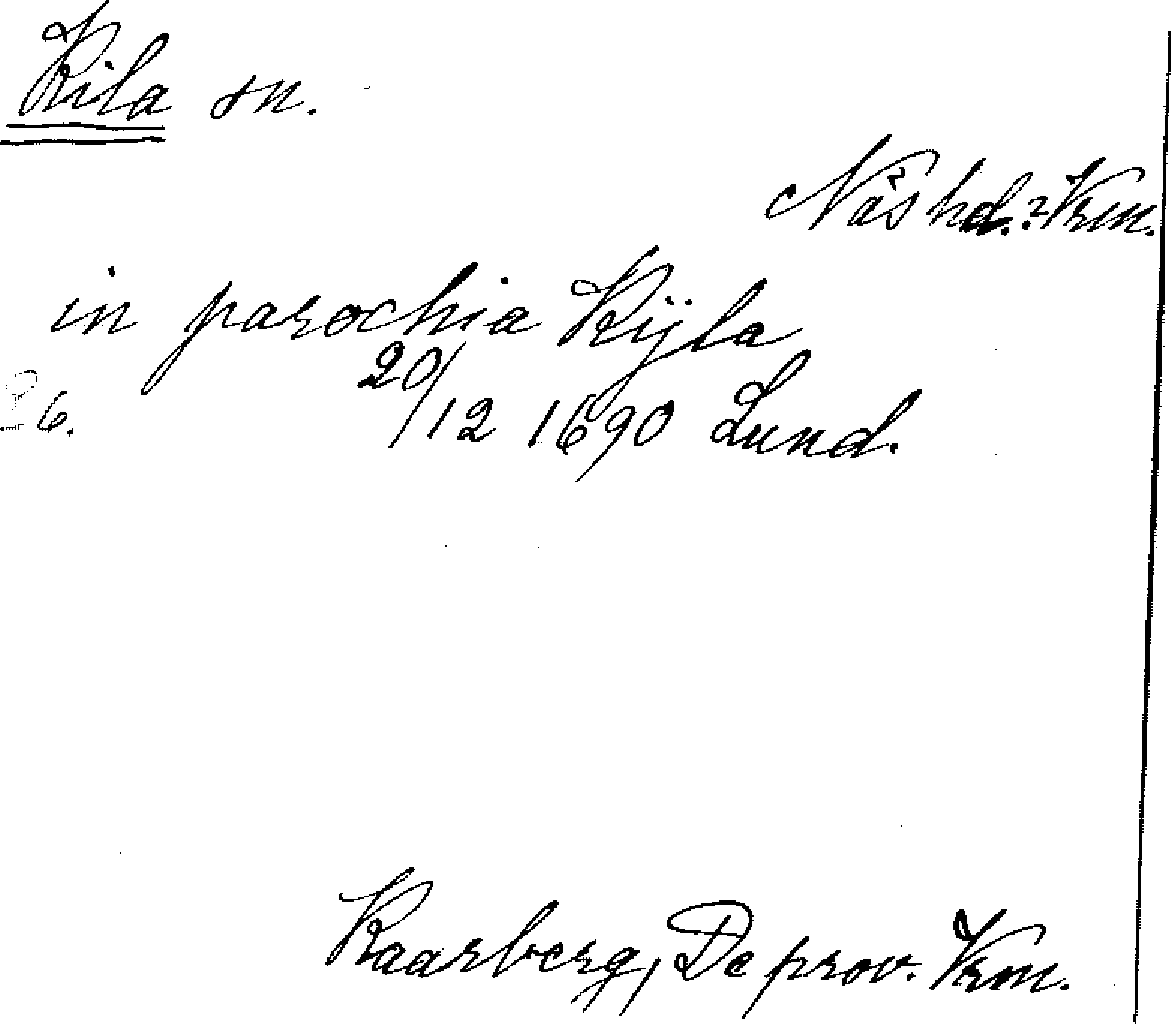 Kila sn.
Näs hd. Vrm.
in parochia Kijla
20/12 1690 Lund.
6.
Kaarberg, De prov. Vrm.